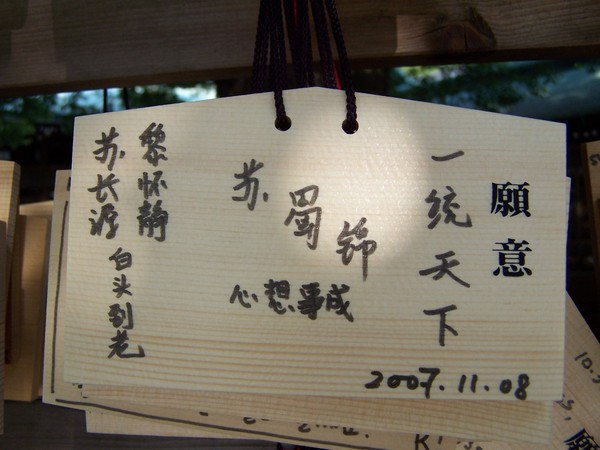 願意
一统天下
苏蜀锦
心想事成
黎怀静
苏长源
白头到老
2007.11.08
10.
願